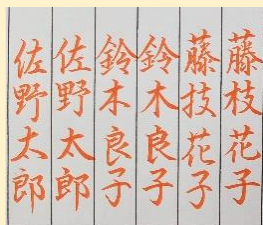 藤枝花子
藤技花子
鈴木良子
鈴木良子
佐野太郎
佐野太郎